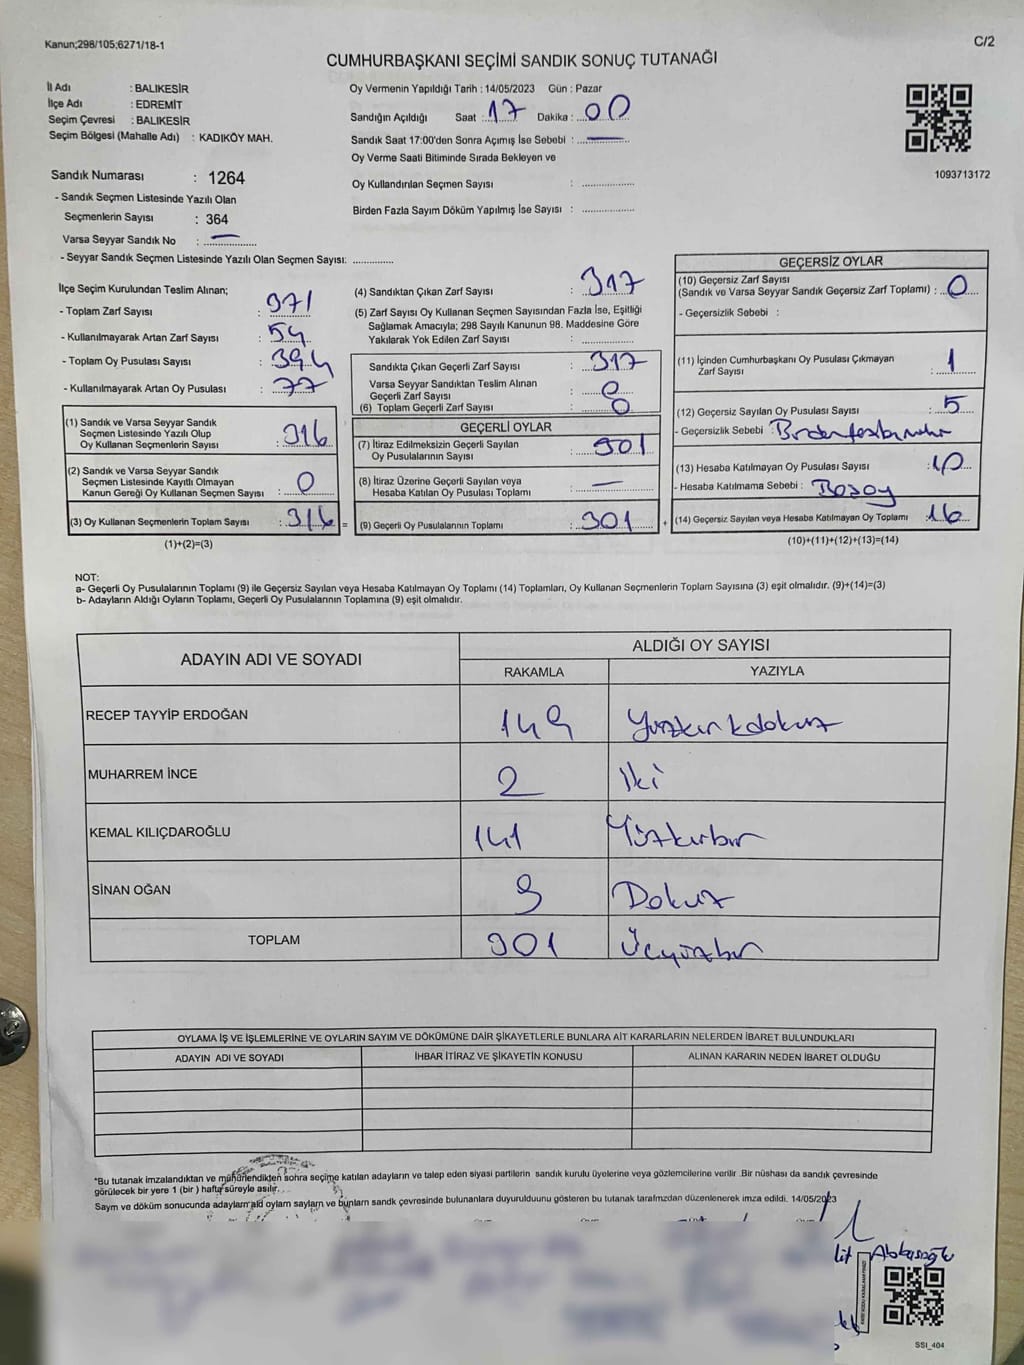 Kanun;298/105;6271/18-1
C/2
CUMHURBAŞKANI SEÇİMİ SANDIK SONUÇ TUTANAĞI
İl Adı : BALIKESİR
İlçe Adı : EDREMİT
Seçim Çevresi : BALIKESİR
Seçim Bölgesi (Mahalle Adı) : KADIKÖY MAH.
Sandık Numarası : 1264
- Sandık Seçmen Listesinde Yazılı Olan
Seçmenlerin Sayısı : 364
Varsa Seyyar Sandık No : —
- Seyyar Sandık Seçmen Listesinde Yazılı Olan Seçmen Sayısı: ..............
Oy Vermenin Yapıldığı Tarih : 14/05/2023 Gün : Pazar
Sandığın Açıldığı Saat : 17 Dakika : 00
Sandık Saat 17:00'den Sonra Açımış İse Sebebi : —
Oy Verme Saati Bitiminde Sırada Bekleyen ve
Oy Kullandırılan Seçmen Sayısı : ..................
Birden Fazla Sayım Döküm Yapılmış İse Sayısı : ..................
1093713172
İlçe Seçim Kurulundan Teslim Alınan;
- Toplam Zarf Sayısı : 371
- Kullanılmayarak Artan Zarf Sayısı : 54
- Toplam Oy Pusulası Sayısı : 394
- Kullanılmayarak Artan Oy Pusulası : 77
(1) Sandık ve Varsa Seyyar Sandık
Seçmen Listesinde Yazılı Olup
Oy Kullanan Seçmenlerin Sayısı : 316
(2) Sandık ve Varsa Seyyar Sandık
Seçmen Listesinde Kayıtlı Olmayan
Kanun Gereği Oy Kullanan Seçmen Sayısı : 0
(3) Oy Kullanan Seçmenlerin Toplam Sayısı : 316 =
(1)+(2)=(3)
(4) Sandıktan Çıkan Zarf Sayısı : 317
(5) Zarf Sayısı Oy Kullanan Seçmen Sayısından Fazla İse, Eşitliği
Sağlamak Amacıyla; 298 Sayılı Kanunun 98. Maddesine Göre
Yakılarak Yok Edilen Zarf Sayısı : ..................
Sandıkta Çıkan Geçerli Zarf Sayısı : 317
Varsa Seyyar Sandıktan Teslim Alınan
Geçerli Zarf Sayısı : 0
(6) Toplam Geçerli Zarf Sayısı : 0
GEÇERLİ OYLAR
(7) İtiraz Edilmeksizin Geçerli Sayılan
Oy Pusulalarının Sayısı : 301
(8) İtiraz Üzerine Geçerli Sayılan veya
Hesaba Katılan Oy Pusulası Toplamı : —
(9) Geçerli Oy Pusulalarının Toplamı : 301 +
GEÇERSİZ OYLAR
(10) Geçersiz Zarf Sayısı
(Sandık ve Varsa Seyyar Sandık Geçersiz Zarf Toplamı) : 0
- Geçersizlik Sebebi :
(11) İçinden Cumhurbaşkanı Oy Pusulası Çıkmayan
Zarf Sayısı : 1
(12) Geçersiz Sayılan Oy Pusulası Sayısı : 5
- Geçersizlik Sebebi :
(13) Hesaba Katılmayan Oy Pusulası Sayısı : 10
- Hesaba Katılmama Sebebi :
(14) Geçersiz Sayılan veya Hesaba Katılmayan Oy Toplamı : 16
(10)+(11)+(12)+(13)=(14)
NOT:
a- Geçerli Oy Pusulalarının Toplamı (9) ile Geçersiz Sayılan veya Hesaba Katılmayan Oy Toplamı (14) Toplamları, Oy Kullanan Seçmenlerin Toplam Sayısına (3) eşit olmalıdır. (9)+(14)=(3)
b- Adayların Aldığı Oyların Toplamı, Geçerli Oy Pusulalarının Toplamına (9) eşit olmalıdır.
ADAYIN ADI VE SOYADI
ALDIĞI OY SAYISI
RAKAMLA YAZIYLA
RECEP TAYYİP ERDOĞAN 149 Yüzkırkdokuz
MUHARREM İNCE 2 İki
KEMAL KILIÇDAROĞLU 141 Yüzkırbir
SİNAN OĞAN 9 Dokuz
TOPLAM 301 Üçyüzbir
OYLAMA İŞ VE İŞLEMLERİNE VE OYLARIN SAYIM VE DÖKÜMÜNE DAİR ŞİKAYETLERLE BUNLARA AİT KARARLARIN NELERDEN İBARET BULUNDUKLARI
ADAYIN ADI VE SOYADI İHBAR İTİRAZ VE ŞİKAYETİN KONUSU ALINAN KARARIN NEDEN İBARET OLDUĞU
*Bu tutanak imzalandıktan ve mühürlendikten sonra seçime katılan adayların ve talep eden siyasi partilerin sandık kurulu üyelerine veya gözlemcilerine verilir .Bir nüshası da sandık çevresinde
görülecek bir yere 1 (bir ) hafta süreyle asılır.
Saym ve döküm sonucunda adayların ald oylarn sayları ve bunlarn sandk çevresinde bulunanlara duyurulduunu gösteren bu tutanak tarafmzdan düzenlenerek imza edildi. 14/05/2023
SSI_404